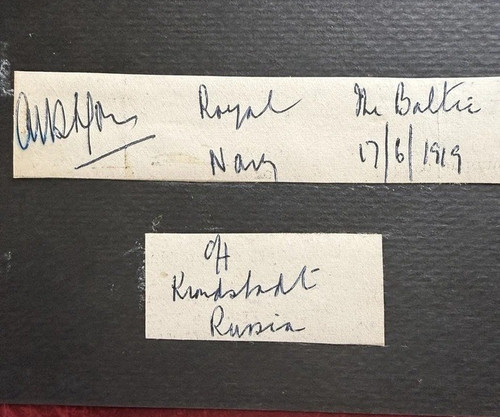 AWSAgar Royal The Baltic
Navy 17/6/1919
off
Krondstadt
Russia